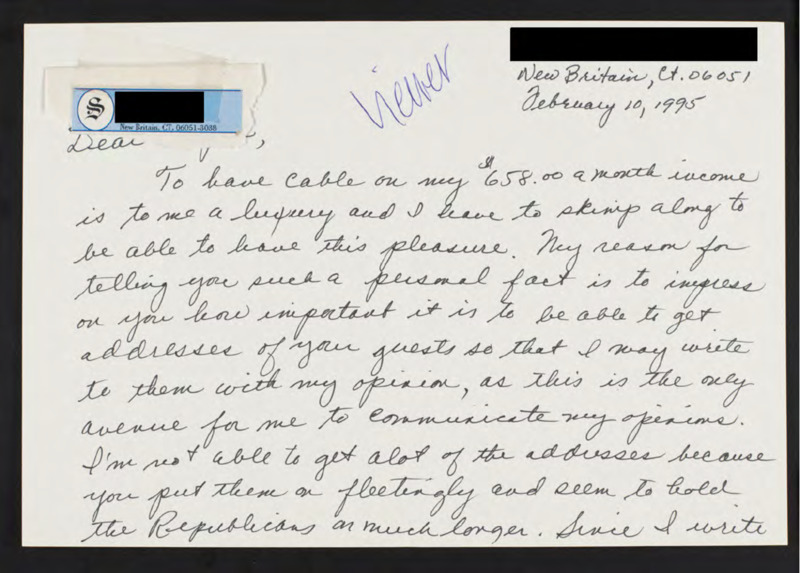 New Britain, Ct. 06051
February 10, 1995
viewer
S
New Britain, CT. 06051-3088
Dear
To have cable on my $658.00 a month income
is to me a luxury and I have to skimp along to
be able to have this pleasure. My reason for
telling you such a personal fact is to impress
on you how important it is to be able to get
addresses of your guests so that I may write
to them with my opinion, as this is the only
avenue for me to communicate my opinions.
I'm not able to get alot of the addresses because
you put them on fleetingly and seem to hold
the Republicans on much longer. Since I write